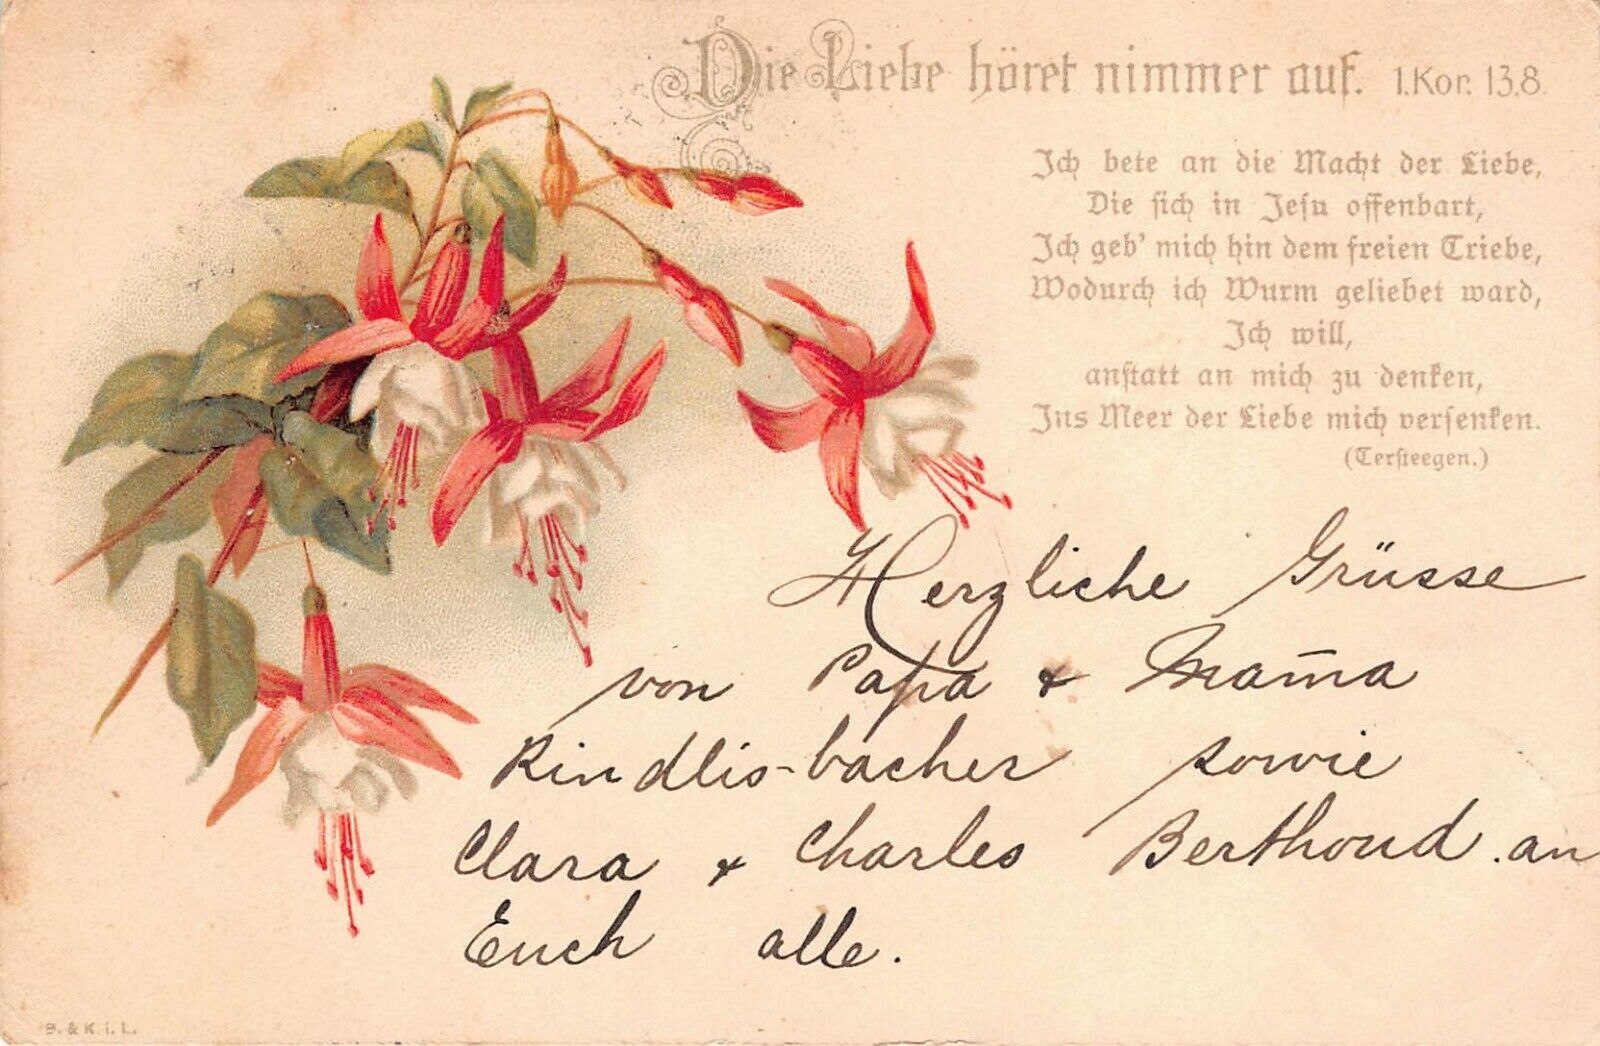 Die Liebe höret nimmer auf. 1.Kor. 13.8.
Ich bete an die Macht der Liebe,
Die sich in Jesu offenbart,
Ich geb' mich hin dem freien Triebe,
Wodurch ich Wurm geliebet ward,
Ich will,
anstatt an mich zu denken,
Ins Meer der Liebe mich versenken.
(Tersteegen.)
Herzliche Grüsse
von Papa & Mama
Rindlis-bacher sowie
Clara & Charles Berthoud. an
Euch alle.
B. & K. i. L.